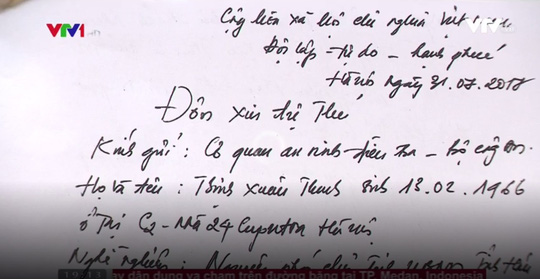 VTV1
VTV
Cộng hòa xã hội chủ nghĩa Việt nam
Độc lập - tự do - hạnh phúc
Hà nội ngày 31.07.2017
Đơn xin tự Thú
Kính gửi : Cơ quan an ninh điều tra - Bộ công an.
Họ và tên : Trịnh Xuân Thanh sinh 13.02.1966
ở tại C2 - Nhà 24 Hà nội
Nghề nghiệp : Nguyên phó chủ Tịch
19:11
máy bay dân dụng va chạm trên đường băng tại TP. Medan, Indonesia